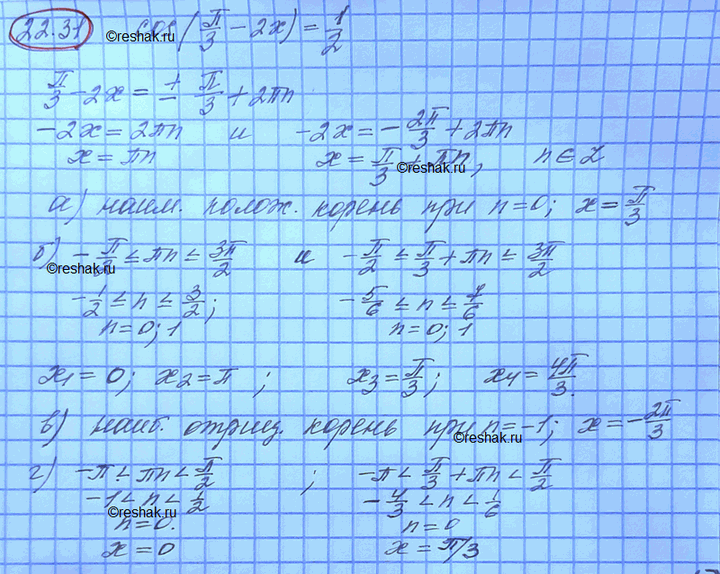 22.31 cos(π/3 − 2x) = 1/2
©reshak.ru
π/3 − 2x = ± π/3 + 2πn
−2x = 2πn и −2x = −2π/3 + 2πn
x = πn x = π/3 + πn, n ∈ Z
©reshak.ru
а) наим. полож. корень при n=0; x = π/3
б) −π/2 ≤ πn ≤ 3π/2 и −π/2 ≤ π/3 + πn ≤ 3π/2
©reshak.ru
−1/2 ≤ n ≤ 3/2; −5/6 ≤ n ≤ 7/6
n=0; 1 n=0; 1
x1 = 0; x2 = π; x3 = π/3; x4 = 4π/3.
в) наиб. отриц. корень при n=−1; x = −2π/3
©reshak.ru
г) −π < πn < π/2; −π < π/3 + πn < π/2
−1 < n < 1/2 −4/3 < n < 1/6
©reshak.ru
n=0. n=0
x=0 x=π/3